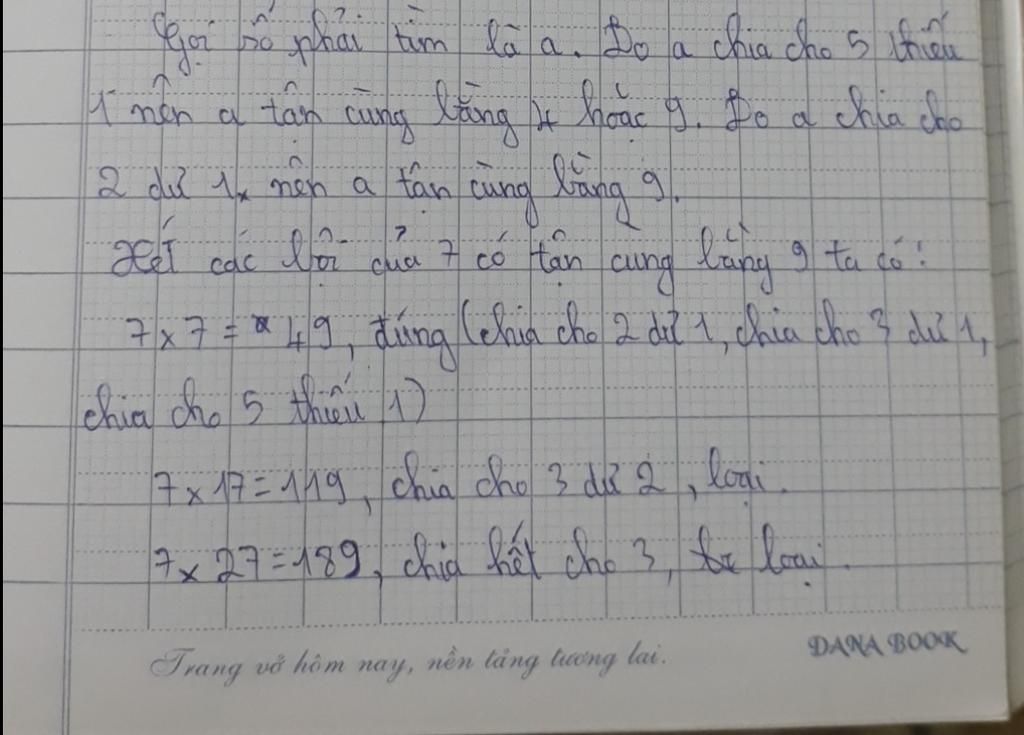 Gọi số phải tìm là a. Do a chia cho 5 thiếu
1 nên a tận cùng bằng 4 hoặc 9. Do a chia cho
2 dư 1, nên a tận cùng bằng 9.
Xét các bội của 7 có tận cùng bằng 9 ta có:
7 x 7 = 49, đúng (chia cho 2 dư 1, chia cho 3 dư 1,
chia cho 5 thiếu 1)
7 x 17 = 119, chia cho 3 dư 2, loại.
7 x 27 = 189, chia hết cho 3, loại.
Trang vở hôm nay, nền tảng tương lai.
DANA BOOK